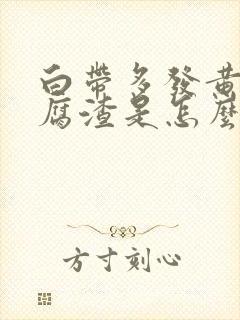 白帶多發黃
腐渣是怎麼
方寸刻心